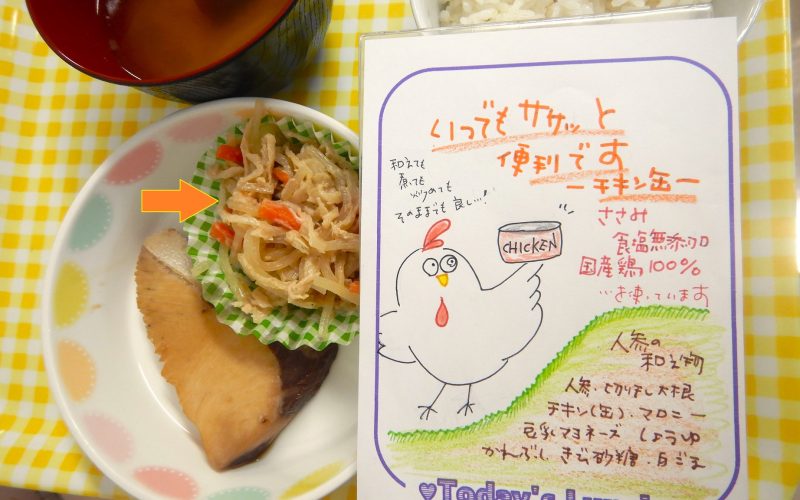 いつでもササッと
便利です
ーチキン缶ー
和えても
煮ても
炒めても
そのままでも良い…!
CHICKEN
ささみ
食塩無添加
国産鶏100%
…を使っています
人参の
和え物
人参・切りぼし大根
チキン(缶)・マロニー
豆乳マヨネーズ しょうゆ
かつおぶし きび砂糖・白ごま
♥Today's